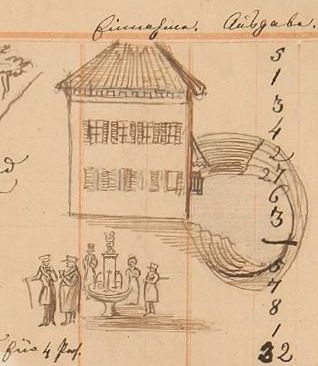 Einnahme. Ausgabe.
5
1
3
4
2
27
6
3
6
7
8
1
32
für 4 Pos.